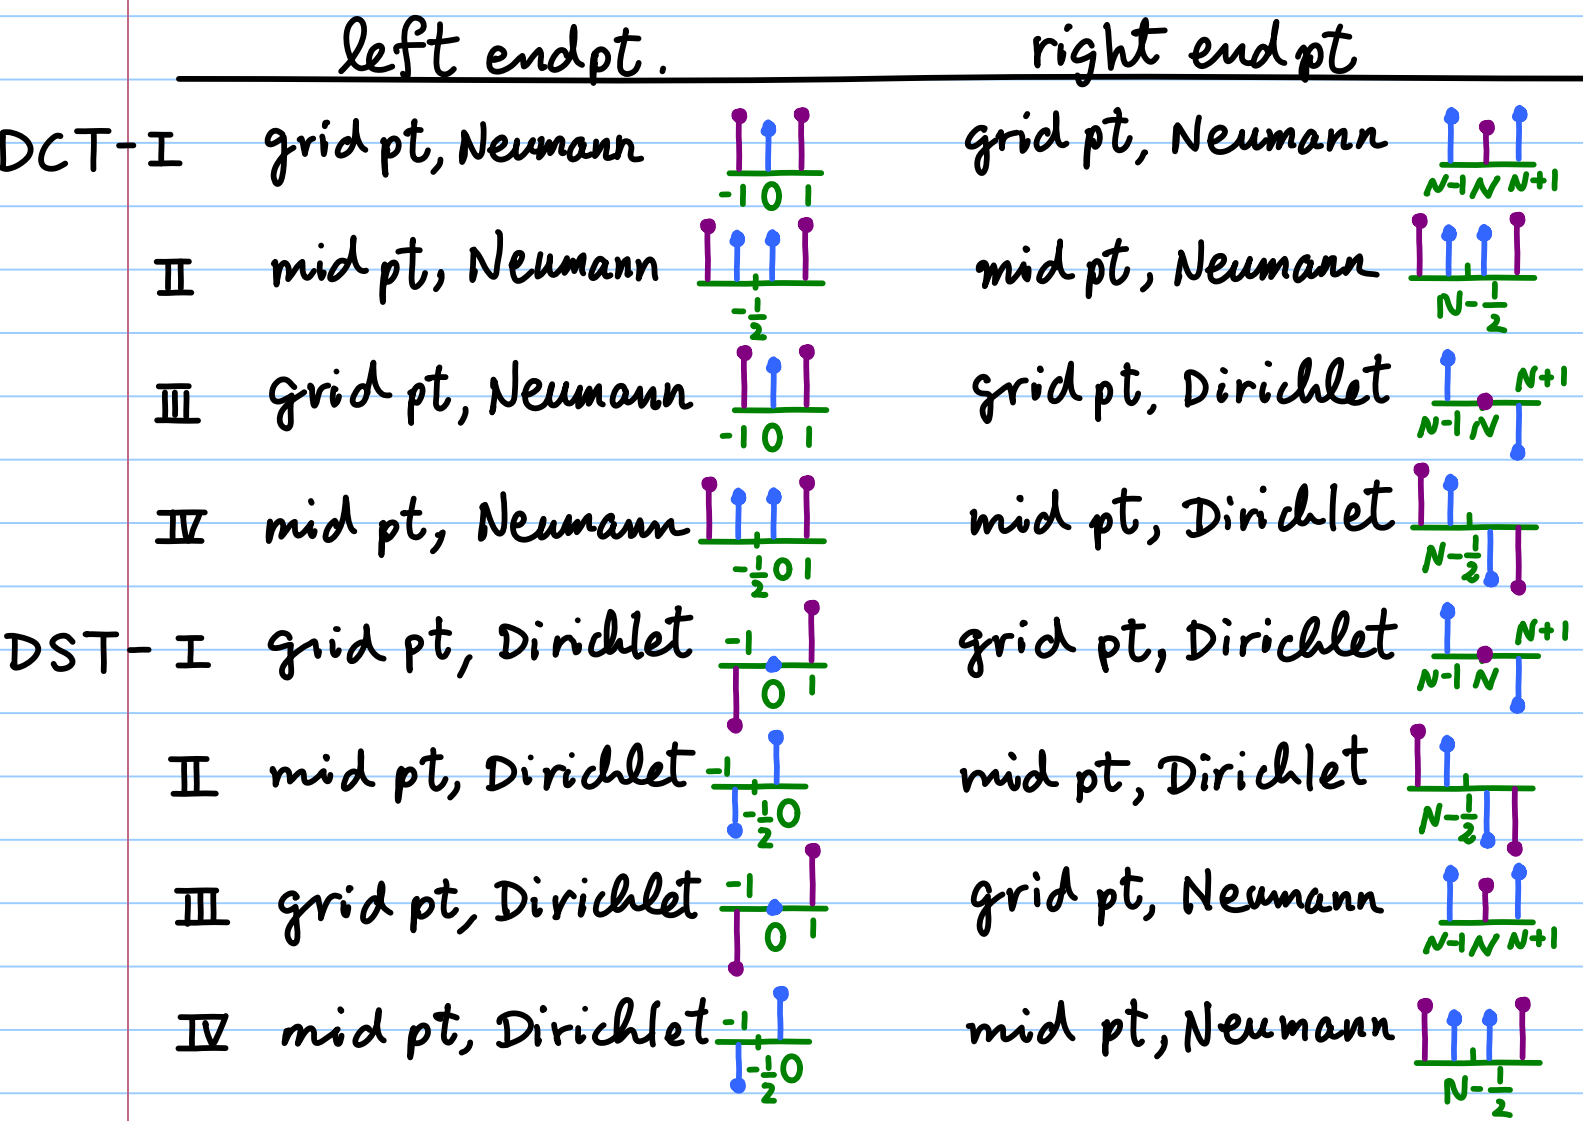 left endpt. right endpt
DCT-I grid pt, Neumann -1 0 1 grid pt, Neumann N-1 N N+1
II mid pt, Neumann -1/2 mid pt, Neumann N-1/2
III grid pt, Neumann -1 0 1 grid pt, Dirichlet N-1 N N+1
IV mid pt, Neumann -1/2 0 1 mid pt, Dirichlet N-1/2
DST-I grid pt, Dirichlet -1 0 1 grid pt, Dirichlet N-1 N N+1
II mid pt, Dirichlet -1 -1/2 0 mid pt, Dirichlet N-1/2
III grid pt, Dirichlet -1 0 1 grid pt, Neumann N-1 N N+1
IV mid pt, Dirichlet -1 -1/2 0 mid pt, Neumann N-1/2